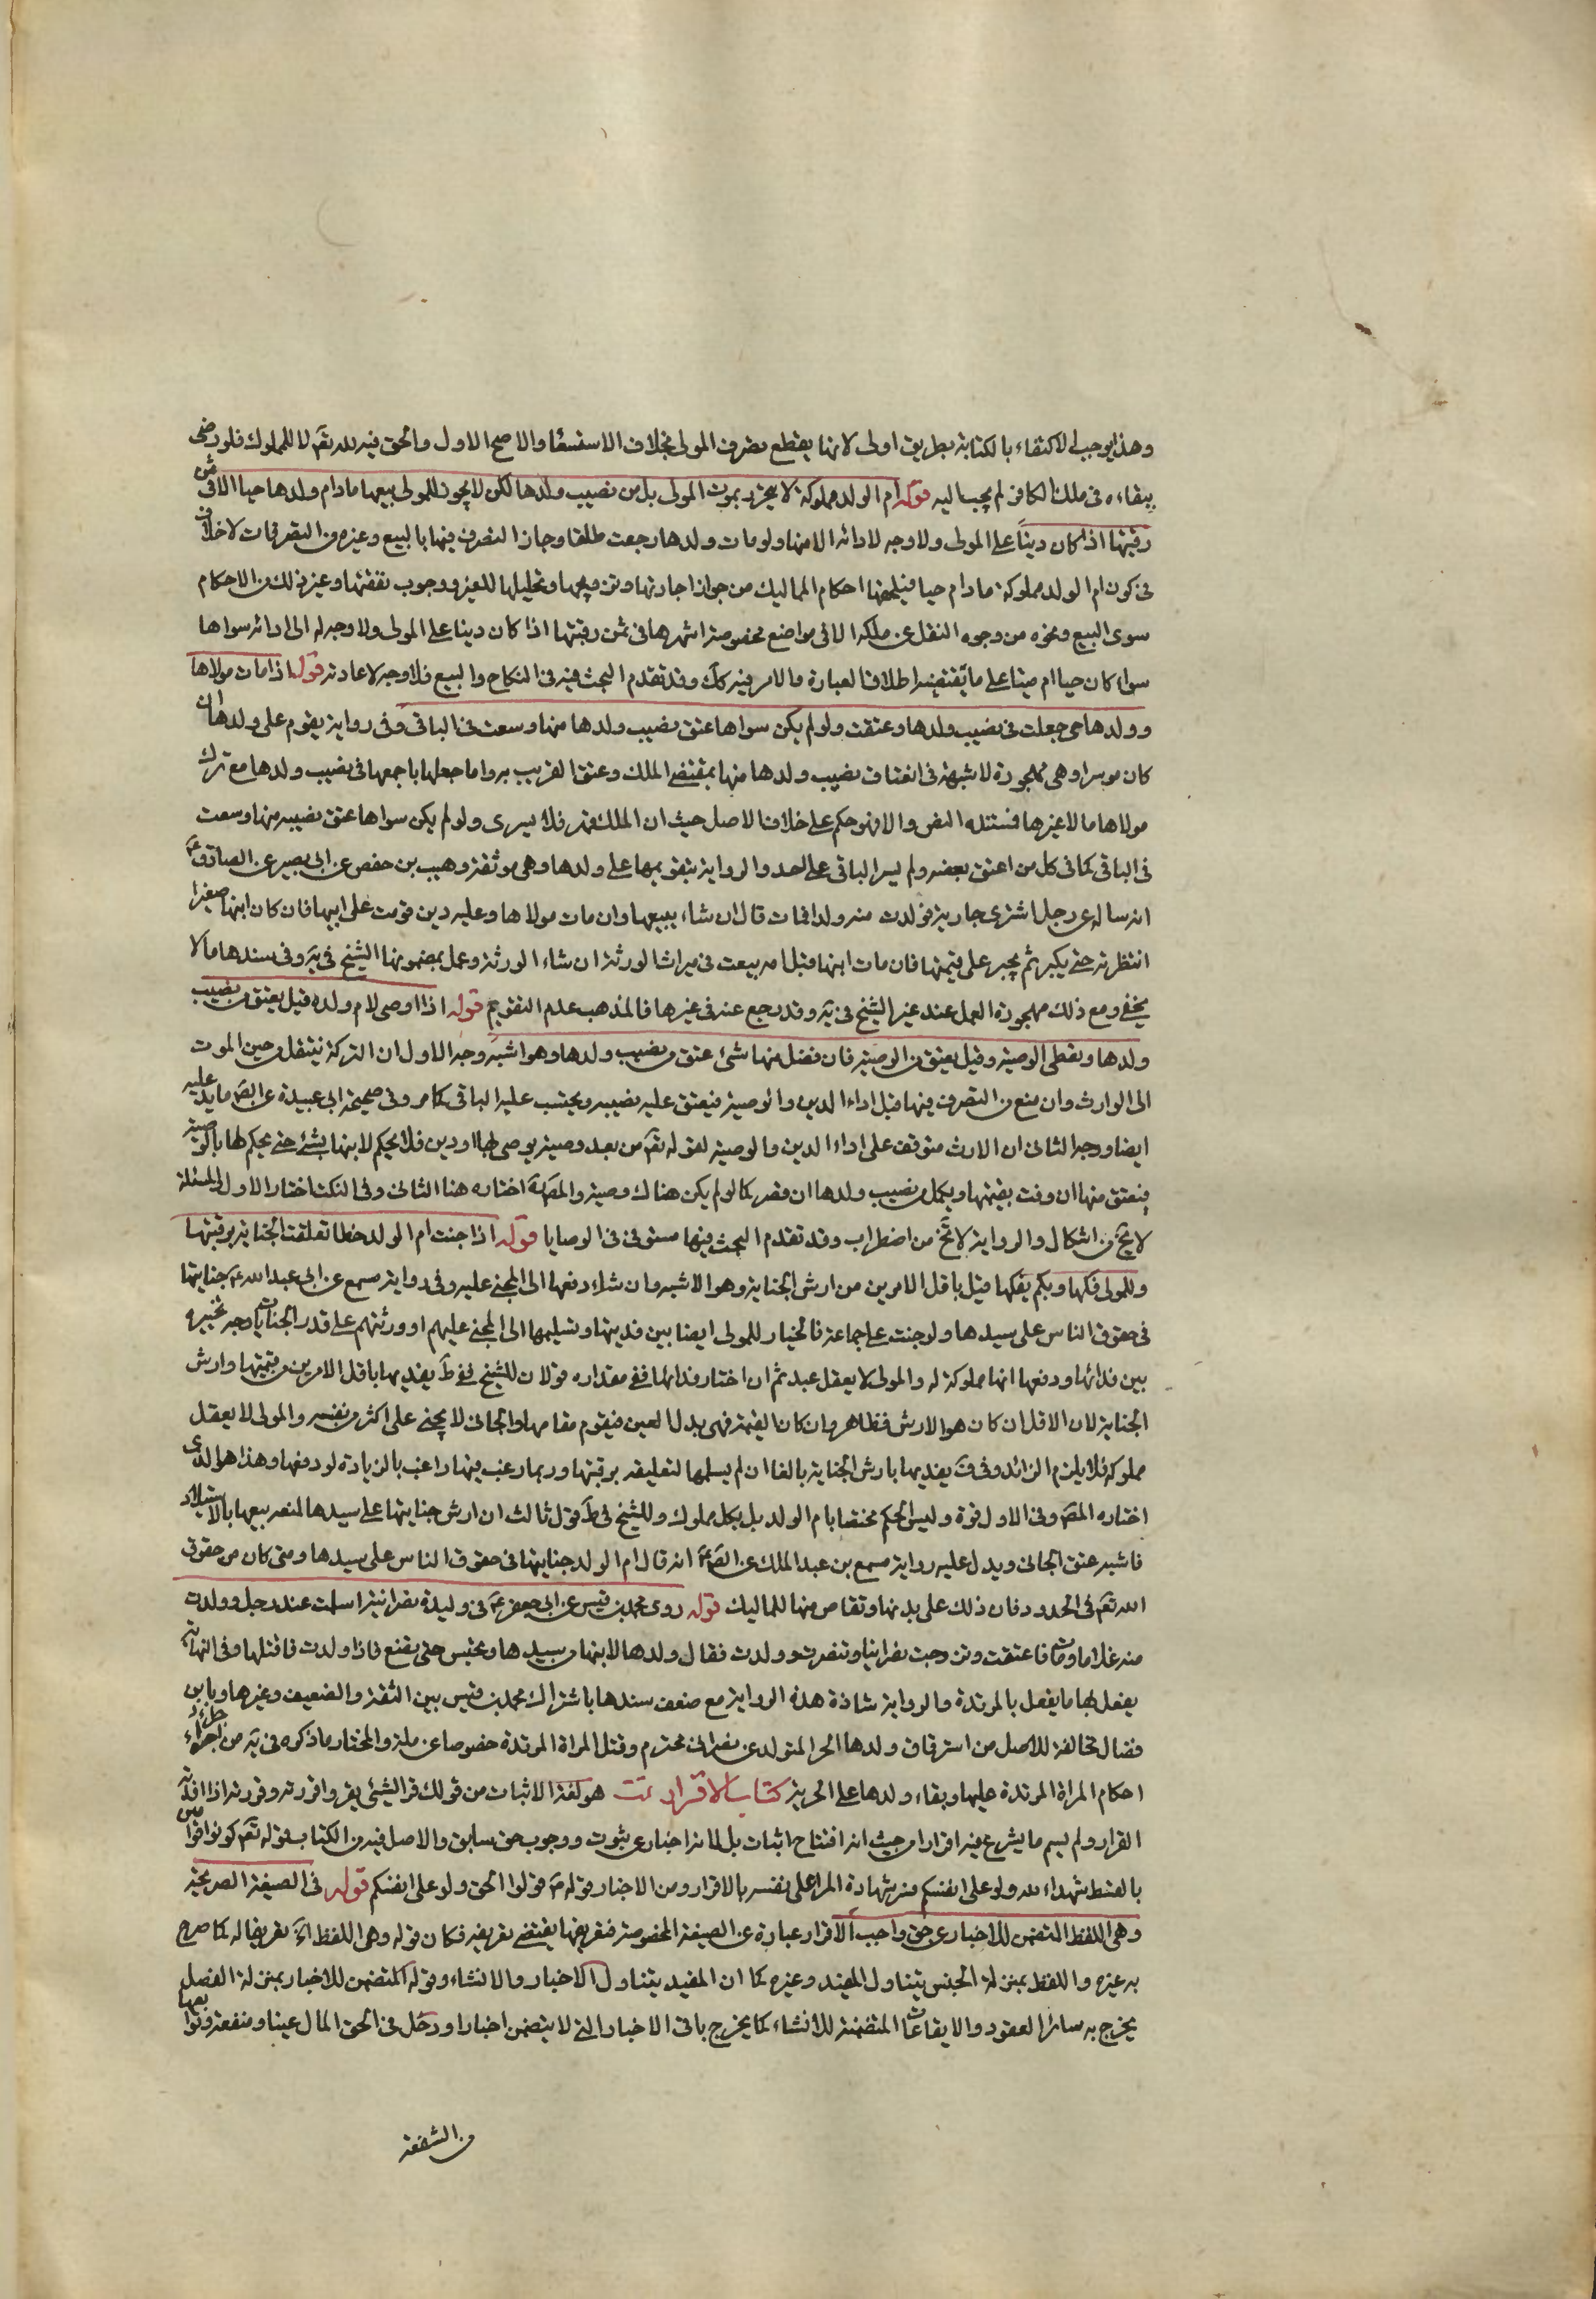 وهذا يوجب الاكتفاء بالكتابة بطريق اولى لانها يقطع تصرف المولى بخلاف الاستسعاء والاصح الاول والحق فيه لله تعم لا للمملوك فلو رضى
ببقاءه في ملك الكافر لم يجب اليه قوله ام الولد مملوكة لا يتحرر بموت المولى بل من نصيب ولدها لكن لا يجوز للمولى بيعها مادام ولدها حيا الا فى ثمن
رقبتها اذا كان دينا على المولى ولا وجه لادائه الا منها ولو مات ولدها رجعت طلقا وجاز التصرف فيها بالبيع وغيره من التصرفات لا خلاف
في كون ام الولد مملوكة مادام حيا فيلحقها احكام المماليك من جواز اجارتها وتزويجها وتحليلها للغير ووجوب نفقتها وغير ذلك من الاحكام
سوى البيع ونحوه من وجوه النقل عن ملكه الا في مواضع مخصوصة اشهرها في ثمن رقبتها اذا كان دينا على المولى ولا وجه له الى ادائه سواها
سواء كان حيا ام ميتا على ما يقتضيه اطلاق العبارة والامر فيه كك وقد تقدم البحث فيه في النكاح والبيع فلا وجه لاعادته قوله اذا مات مولاها
وولدها حى جعلت في نصيب ولدها وعتقت ولو لم يكن سواها عتق نصيب ولدها منها وسعت في الباقي وفي رواية يقوم على ولدها ان
كان موسرا وهي مهجورة لا شبهة في انعتاق نصيب ولدها منها بمقتضى الملك وعتق القريب به واما جعلها باجمعها في نصيب ولدها مع ترك
مولاها مالا غيرها فمستنده النص والا فهو حكم على خلاف الاصل حيث ان الملك قهر فلا يسرى ولو لم يكن سواها عتق نصيبه منها وسعت
في الباقي كما في كل من اعتق بعضه ولم يسر الباقي على احد والرواية بتقويمها على ولدها وهي موثقة وهيب بن حفص عن ابي بصير عن الصادق ع
انه ساله عن رجل اشترى جارية فولدت منه ولدا فمات قال ان شاء يبيعها وان مات مولاها وعليه دين قومت على ابنها فان كان ابنها صغيرا
انتظر به حتى يكبر ثم يجبر على قيمتها فان مات ابنها قبل امه بيعت في ميراث الورثة ان شاء الورثة وعمل بمضمونها الشيخ في ية وفي سندها ما لا
يخفى ومع ذلك مهجورة العمل عند غير الشيخ في ية وقد رجع عنه في غيرها فالمذهب عدم التقويم قوله اذا اوصى لام ولده قيل يعتق من نصيب
ولدها وتعطى الوصية وقيل يعتق من الوصية فان فضل منها شئ عتق من نصيب ولدها وهو اشبه وجه الاول ان التركة ينتقل من حين الموت
الى الوارث وان منع من التصرف فيها قبل اداء الدين والوصية فيعتق عليه نصيبه ويحتسب عليه الباقي كما مر وفي صحيحة ابي عبيدة عن الصم ما يدل عليه
ايضا ووجه الثاني ان الارث متوقف على اداء الدين والوصية لقوله تعم من بعد وصية يوصى بها او دين فلا يحكم لابنها بشئ حتى يحكم لها بالوصية
فيعتق منها ان وفت بقيمتها ويكمل من نصيب ولدها ان قصر كما لو لم يكن هناك وصية والمصنف اختاره هنا الثاني وفي النكت اختار الاول والمسئلة
لا تخ من اشكال والرواية لا تخ من اضطراب وقد تقدم البحث فيها مستوفى في الوصايا قوله اذا جنت ام الولد خطا تعلقت الجناية برقبتها
وللمولى فكها وبكم يفكها قيل باقل الامرين من ارش الجناية وهو الاشبه وان شاء دفعها الى المجنى عليه وفي رواية مسمع عن ابي عبد الله ع جنايتها
في حقوق الناس على سيدها ولو جنت على جماعة فالخيار للمولى ايضا بين فديتها وتسليمها الى المجنى عليهم او ورثتهم على قدر الجنايات وجه تخييره
بين فدائها ودفعها انها مملوكة له والمولى لا يعقل عبده ثم ان اختار فدائها ففي مقداره قولان للشيخ ففي ط يفديها باقل الامرين من قيمتها وارش
الجناية لان الاقل ان كان هو الارش فظاهر وان كان القيمة فهي بدل العين فيقوم مقامها والجاني لا يجنى على اكثر من نفسه والمولى لا يعقل
مملوكه فلا يلزم الزائد وفي ف يفديها بارش الجناية بالغا ان لم يسلمها لتعليقه برقبتها وربما رغب فيها راغب بالزيادة لو دفعها وهذا هو الذى
اختاره المص وفي الاول قوة وليس الحكم مختصا بام الولد بل بكل مملوك وللشيخ في ط قول ثالث ان ارش جنايتها على سيدها لمنعه بيعها بالاستيلاد
فاشبه عتق الجاني ويدل عليه رواية مسمع بن عبد الملك عن الصم انه قال ام الولد جنايتها في حقوق الناس على سيدها ومتى كان من حقوق
الله تعم في الحدود فان ذلك على بدنها وتقاص منها للمماليك قوله روى محمد بن قيس عن ابي جعفر ع في وليدة نصرانية اسلمت عند رجل وولدت
منه غلاما ومات فاعتقت وتزوجت نصرانيا وتنصرت وولدت فقال ولدها لابنها من سيدها وتحبس حتى يضع فاذا ولدت فاقتلها وفي النهاية
يفعل بها ما يفعل بالمرتدة والرواية شاذة هذه الرواية مع ضعف سندها باشتراك محمد بن قيس بين الثقة والضعيف وغيرها وبابن
فضال مخالفة للاصل من استرقاق ولدها الحر المتولد عن نصراني محترم وقتل المراة المرتدة خصوصا عن ملة والمختار ما ذكره في ية من اجراء
احكام المراة المرتدة عليها وبقاء ولدها على الحرية كتاب الاقرار هو لغة الاثبات من قولك قر الشيئ يقر واقررته وقررته اذا افدته
القرار ولم يسم ما يشرع فيه اقرارا من حيث انه افتتاح اثبات بل لانه اخبار عن ثبوت ووجوب حق سابق والاصل فيه من الكتاب قوله تعم كونوا قوامين
بالقسط شهداء لله ولو على انفسكم منه شهادة المرء على نفسه بالاقرار ومن الاخبار قوله ص قولوا الحق ولو على انفسكم قوله في الصيغة الصريحة
وهي اللفظ المتضمن للاخبار عن حق واجب الاقرار عبارة عن الصيغة المخصوصة فتعريفها يقتضى تعريفه فكان قوله وهى اللفظ الخ تعريفا له كما صرح
به غيره واللفظ بمنزلة الجنس يتناول المفيد وغيره كما ان المفيد يتناول الاخبار والانشاء وقوله المتضمن للاخبار بمنزلة الفصل
يخرج به سائر العقود والايقاعات المتضمنة للانشاء كما يخرج باقي الاخبار التي لا يتضمن اخبارا ودخل في الحق المال عينا ومنفعة وتوابعها
من الشفعة